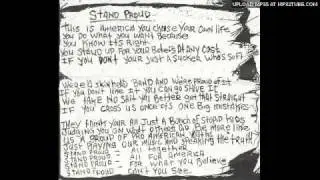 UPLOADED BY TUBE
STAND PROUD
THIS IS AMERICA YOU CHOOSE YOUR OWN LIFE
YOU DO WHAT YOU WANT BECAUSE
YOU KNOW ITS RIGHT
YOU STAND UP FOR YOUR BELIEFS AT ANY COST
IF YOU DON'T YOUR JUST A SUCKER WHO'S SOFT
WE'RE SKINHEAD BAND AND WE'RE PROUD OF IT
IF YOU DON'T LIKE IT YOU CAN SHOVE IT
WE TAKE NO SHIT YOU BETTER GET THAT STRAIGHT
IF YOU CROSS US ONCE ITS ONE BIG MISTAKE
THEY THINK YOUR ALL JUST A BUNCH OF STUPID KIDS
JUDGING YOU ON WHAT OTHERS DID BE MORE LIKE
US A PROUD OF PRO AMERICAN
JUST PLAYING OUR MUSIC AND SPEAKING THE TRUTH
STAND PROUD - ALL TOGETHER
STAND PROUD - ALL FOR AMERICA
STAND PROUD - FOR WHAT YOU BELIEVE
STAND PROUD - CAN'T YOU SEE